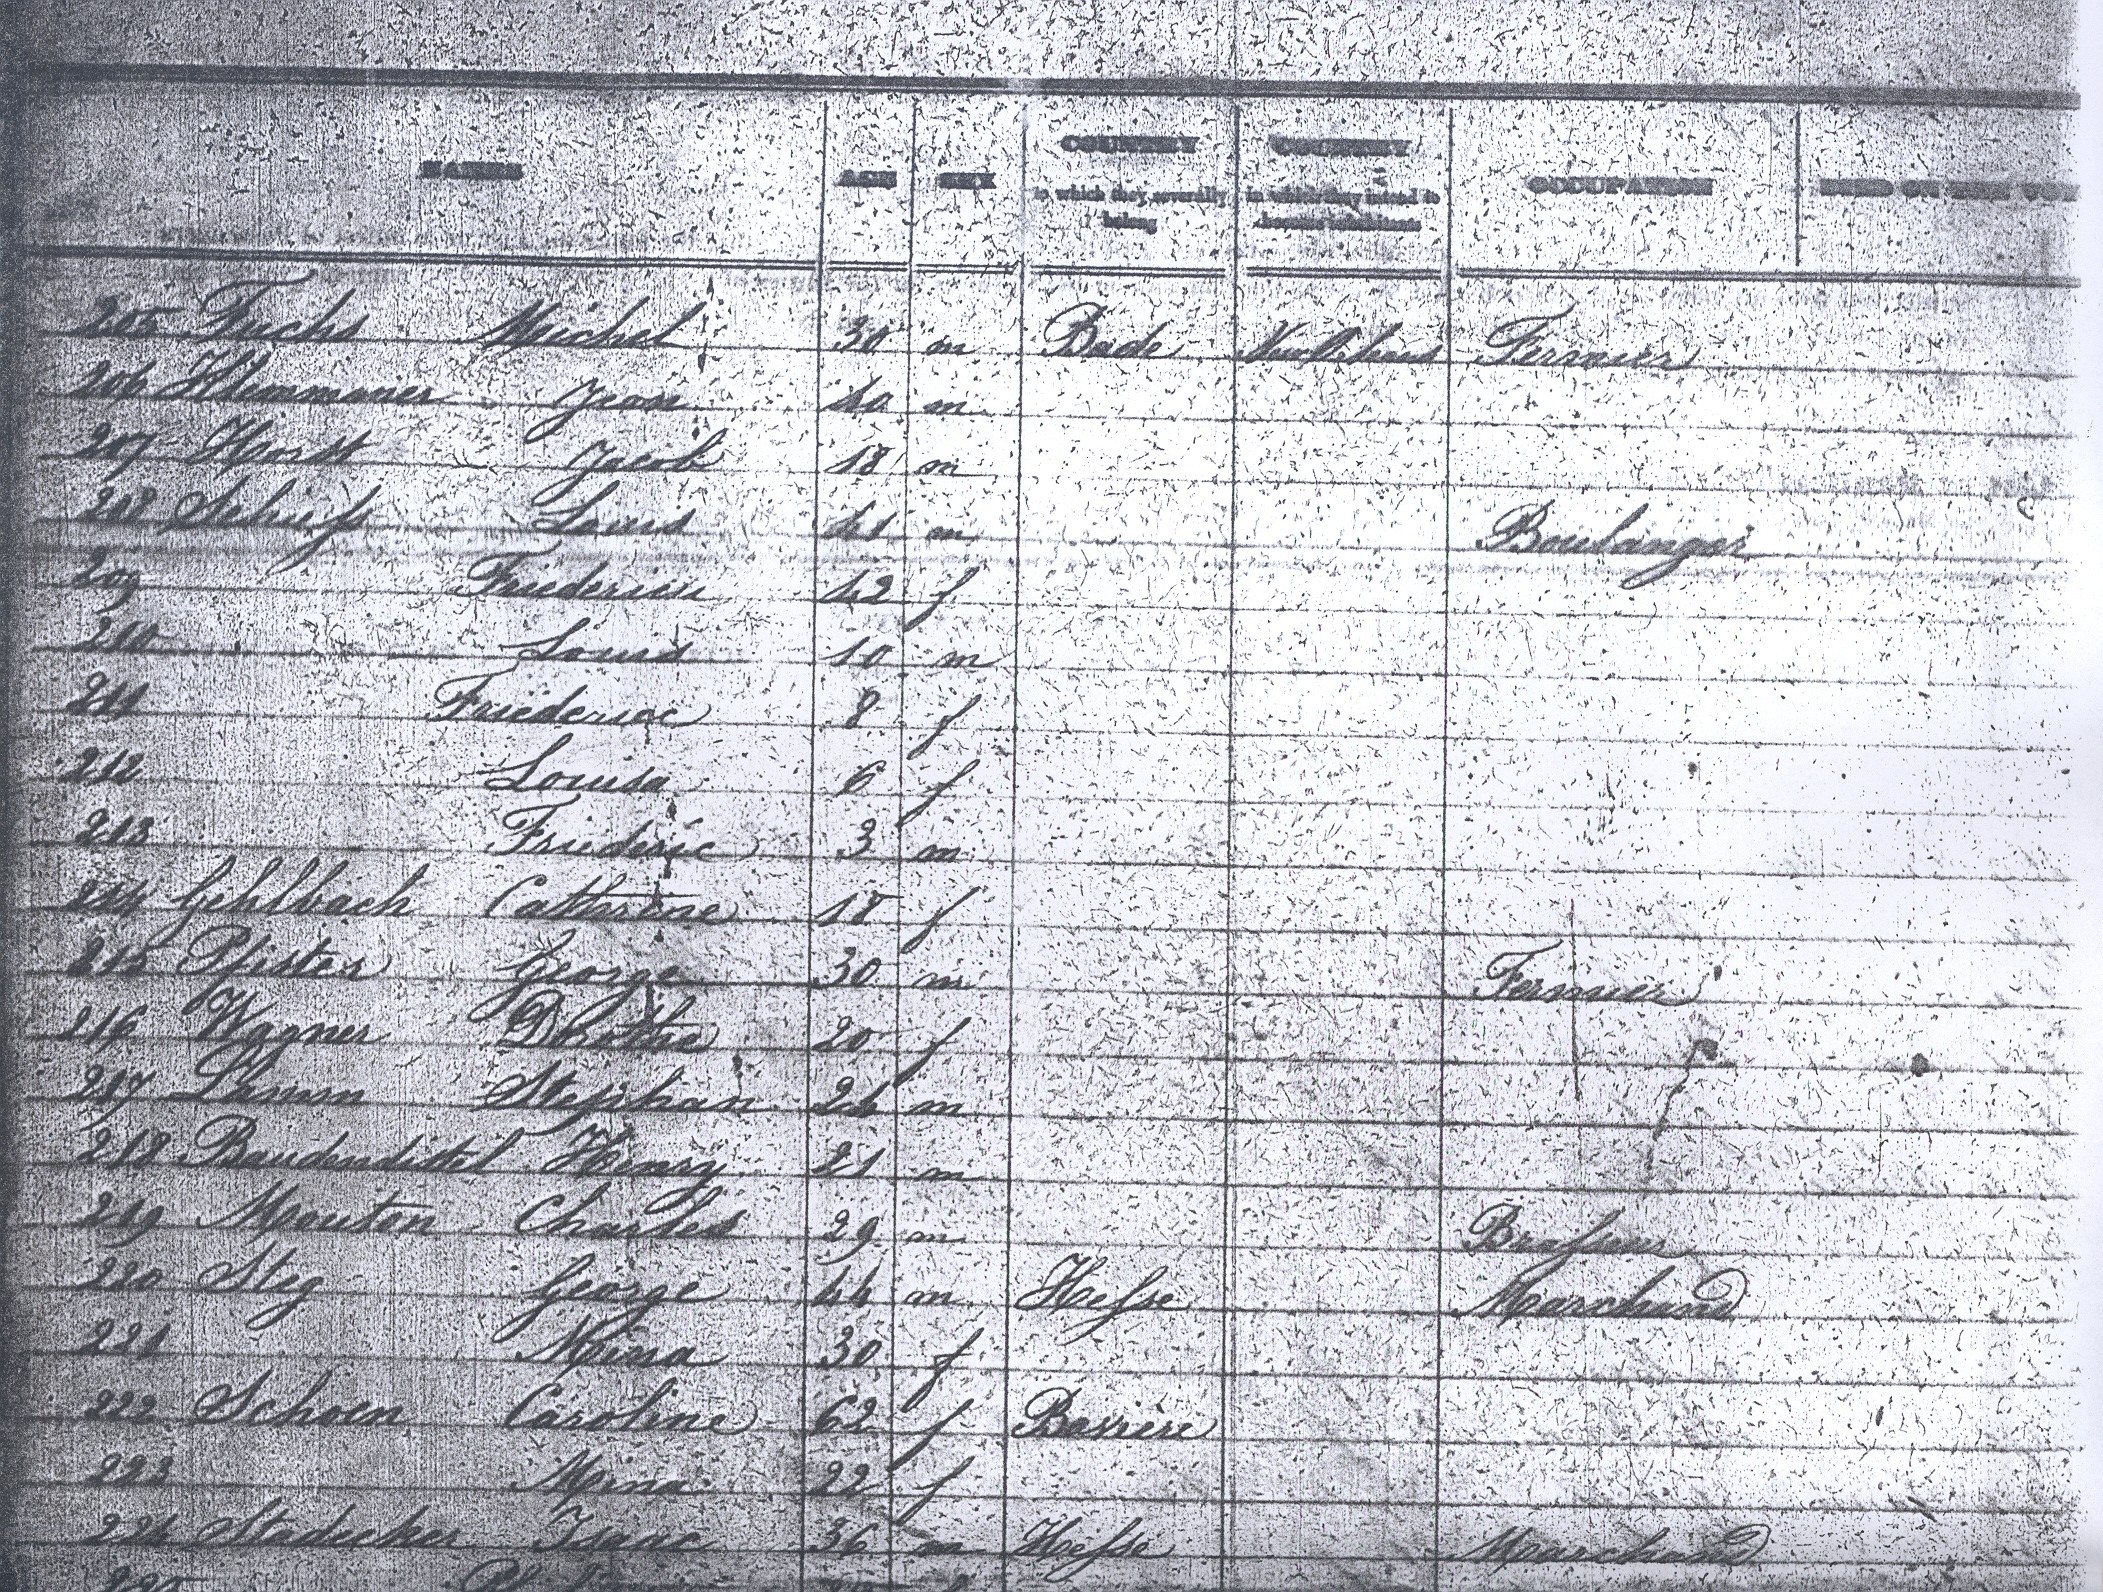 NAMES AGE SEX COUNTRY to which they severally belong COUNTRY in which they intend to become inhabitants OCCUPATION DIED ON THE
205 Fuchs Michel 30 m Bade New Orleans Fermier
206 Klemmmier Jean 40 m
207 Horst Jacob 18 m
208 Louis 41 m Boulanger
209 Friederiu 42 f
210 Louis 10 m
211 Friederic 8 f
212 Louisa 6 f
213 Friederic 3 m
214 Gehlbach Catherine 18 f
215 Pfister George 30 m Fermier
216 Wagner Dorothe 20 f
217 Lamm Stephan 24 m
218 Baudendistel Henry 21 m
219 Mouton Charles 29 m Brasseur
220 Steg George 44 m Hesse Marchand
221 Mina 30 f
222 Schoen Caroline 62 f Baviere
223 Mina 22 f
224 Stadecker Isaac 36 m Hesse Marchand
225